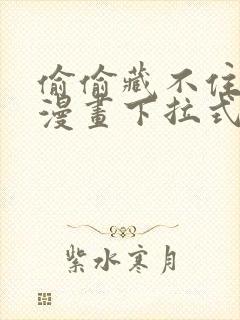 偷偷藏不住
漫畫下拉式
紫水寒月